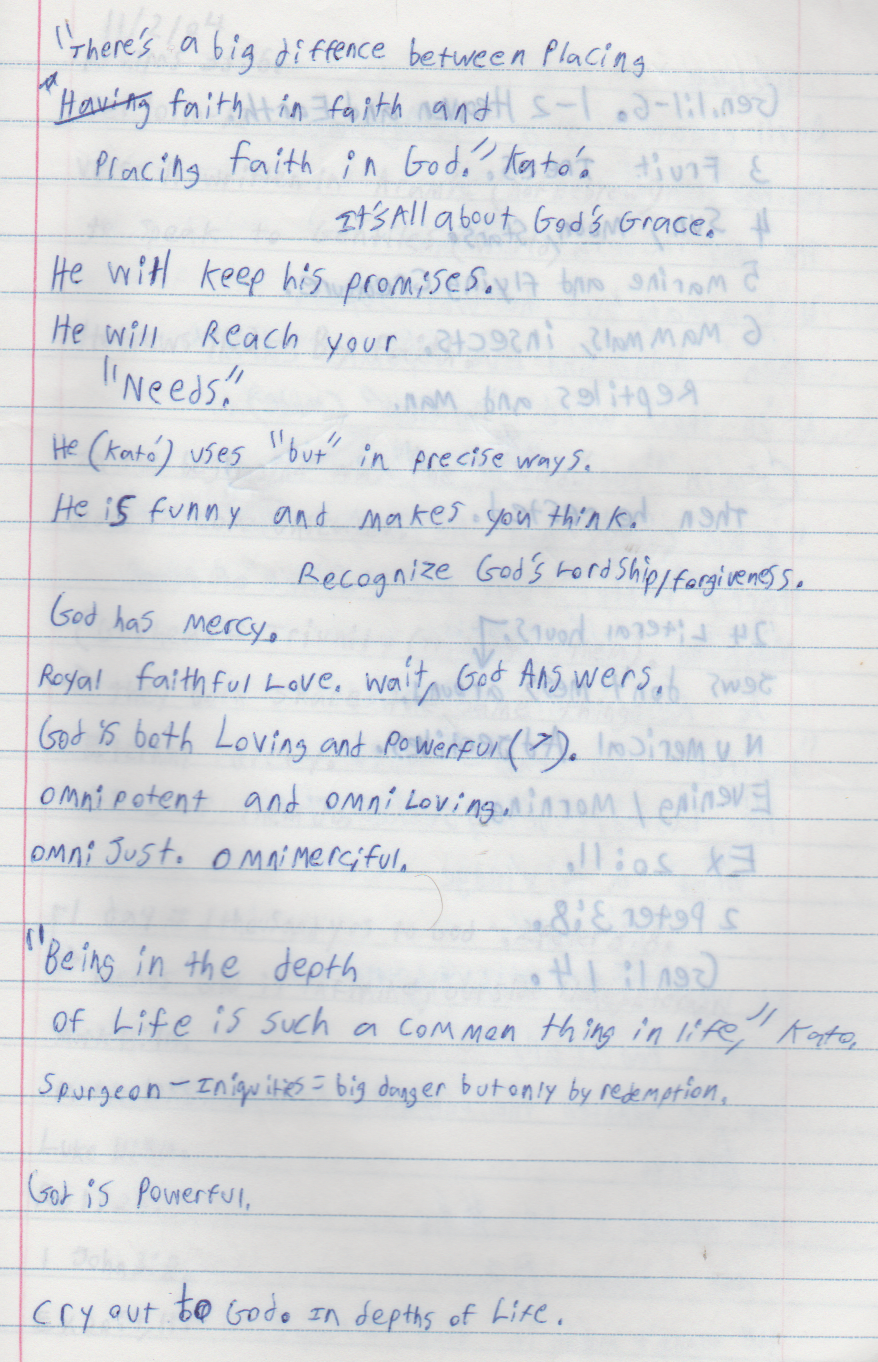 "There's a big diffence between Placing
*Having faith in faith and
Placing faith in God." Kató.
It's All about God's Grace.
He will keep his promises.
He will Reach your
"Needs."
He (Kató) uses "but" in precise ways.
He is funny and makes you think.
Recognize God's Lordship/forgiveness.
God has Mercy.
Royal faithful Love. wait, God Answers.
God is both Loving and Powerful (↗).
Omnipotent and omni Loving.
Omni Just. Omnimerciful.
"Being in the depth
of Life is such a common thing in life," Kato.
Spurgeon - Iniquities = big danger but only by redemption.
God is Powerful.
Cry out to God. In depths of Life.